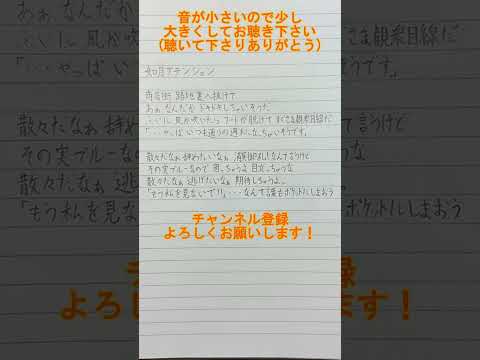 音が小さいので少し
大きくしてお聴き下さい
（聴いて下さりありがとう）
如月アテンション
商店街 路地裏へ抜けて
あぁ なんだか ドキドキしちゃいそうだ
風が吹いたら フードが脱げて すぐさま観衆目線だ
「…やっぱ いつも通りの週末になっちゃいそうです」
散々だなぁ 辞めたいなぁ 満員御礼!なんて言うけど
その実ブルーなので 困っちゃうな 目立っちゃうな
散々だなぁ 逃げたいなぁ 期待しちゃうよ
「もう私を見ないで!!」…なんて言葉ポケットにしまおう
チャンネル登録
よろしくお願いします！